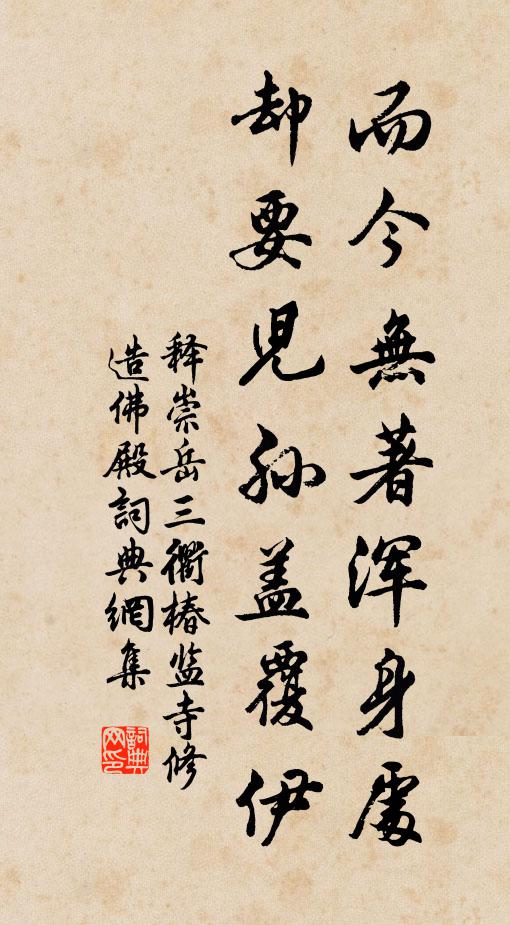 而今無著渾身處
却要児孫盖覆伊
释崇岳三衢椿监寺修
造佛殿詞典網集
詞典
网印